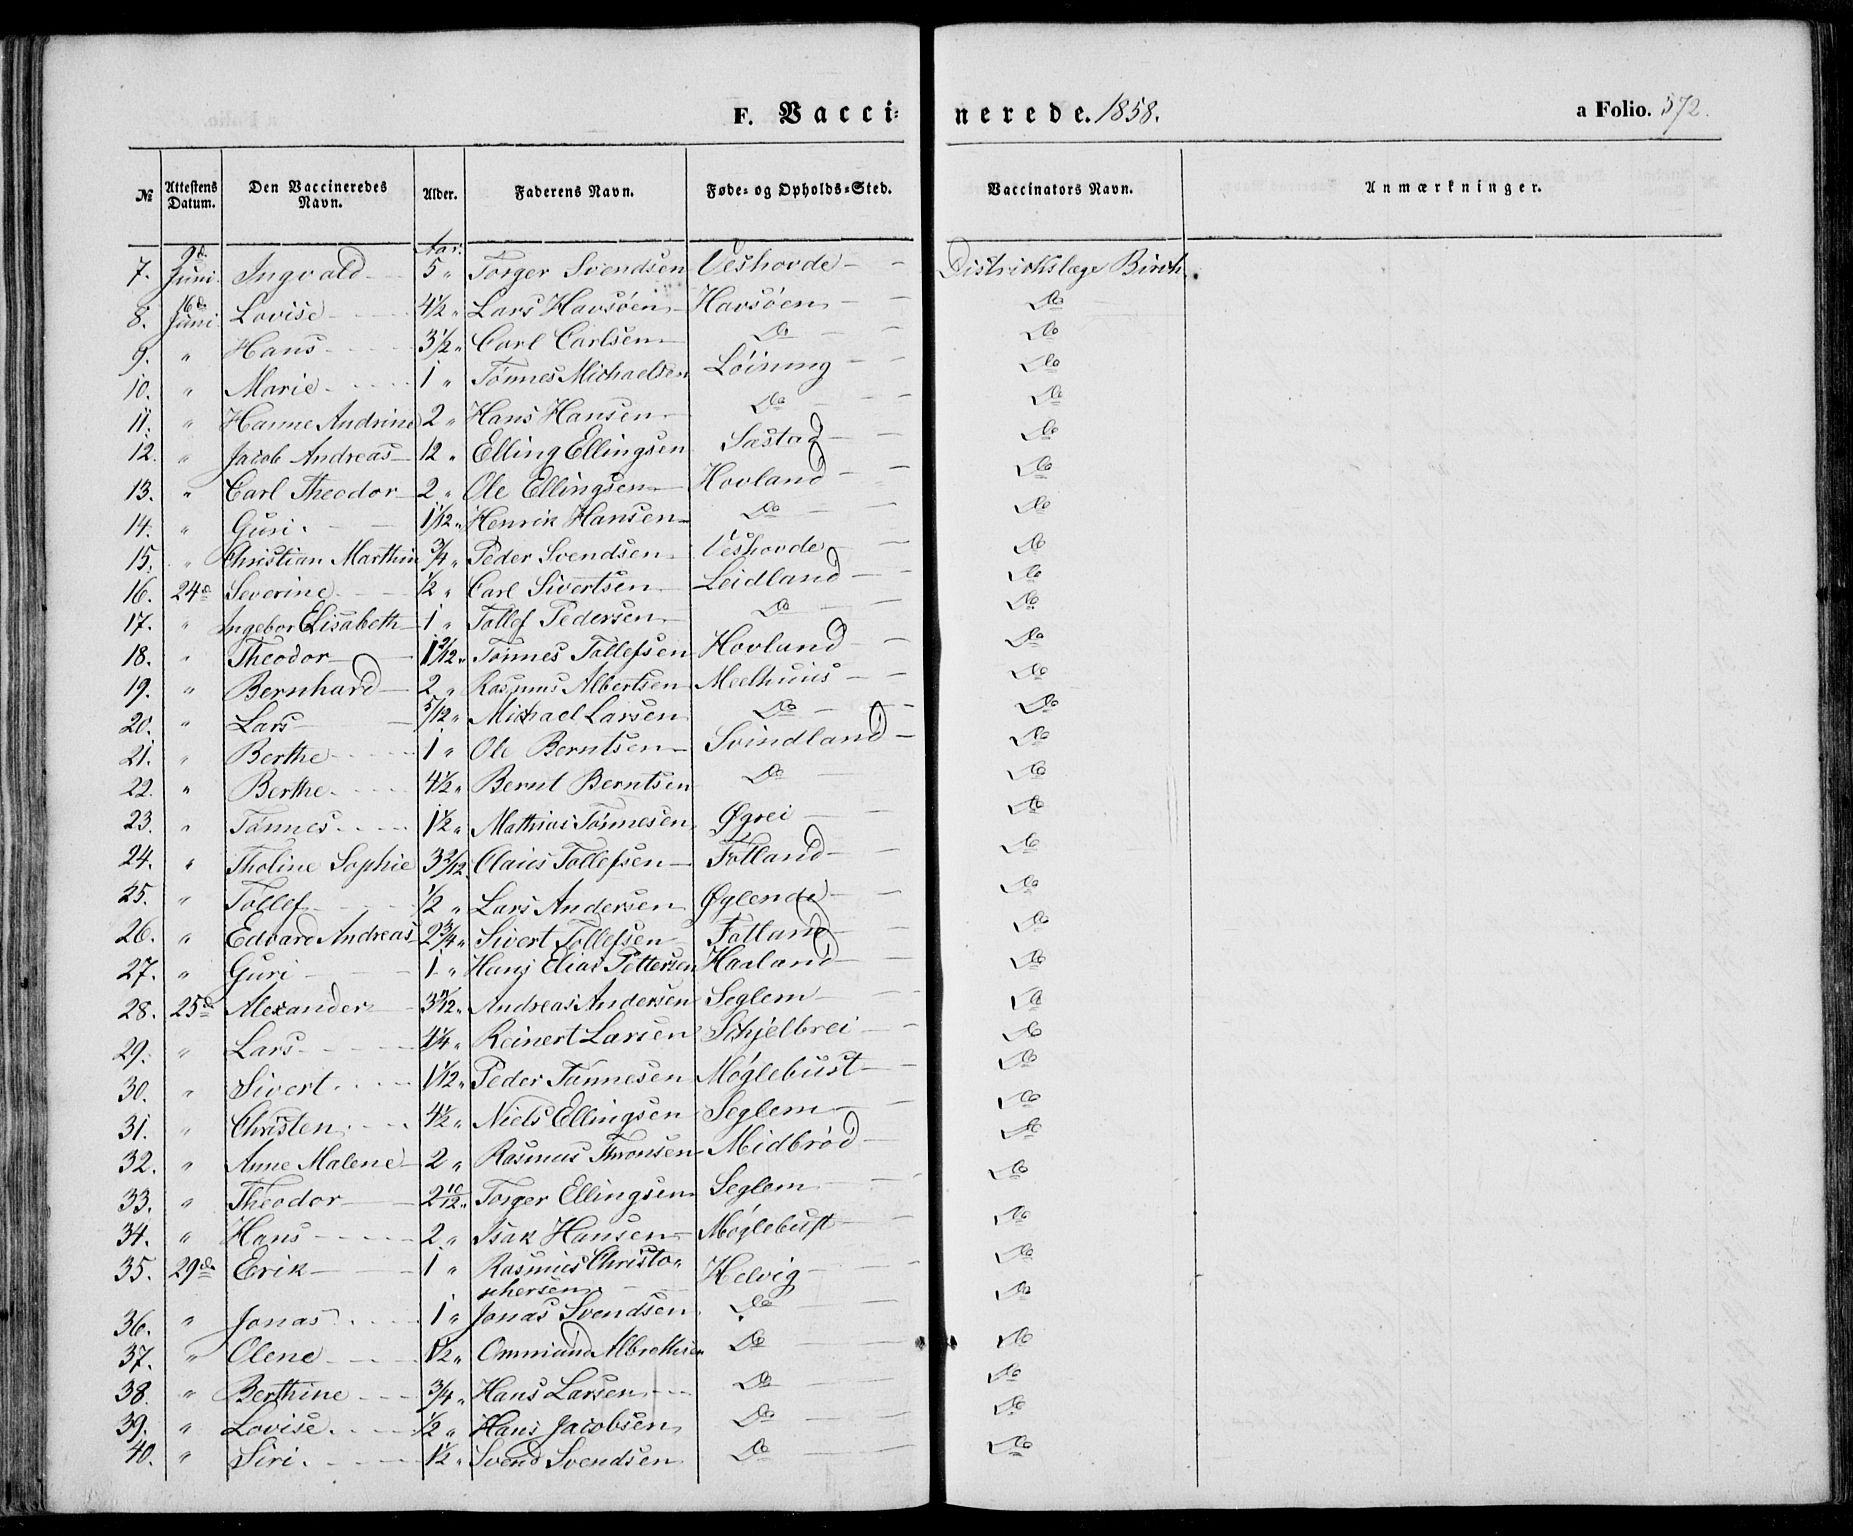 F. Vacci= nerede. 1858. a Folio. 572.
№ Attestens Datum. Den Vaccineredes Navn. Alder. Faderens Navn. Føde- og Opholds-Sted. Vaccinators Navn. Anmærkninger.
Aar.
7. 9d. Juni. Ingvald 5 " Torger Svendsen Veshovde Distriktslæge Birch.
8. 16d. Juni Lovise 4½ " Lars Havsöen Havsöen Do
9. " Hans 3½ " Carl Carlsen Do Do
10. " Marie 1 " Tönnes Michaelsen Löining Do
11. " Hanne Andrine 2 " Hans Hansen Do Do
12. " Jacob Andreas 12 " Elling Ellingsen Sæstad Do
13. " Carl Theodor 2 " Ole Ellingsen Hovland Do
14. " Guri. 1 1/12 " Henrik Hansen Do Do
15. " Christian Marthin 3/4 " Peder Svendsen Veshovde Do
16. 24d Severine 1/2 " Carl Sivertsen Leidland Do
17. " Ingebor Elisabeth 1 " Tollef Pedersen Do Do
18. " Theodor 1 2/12 " Tönnes Tollefsen Hovland Do
19. " Bernhard 2 " Rasmus Albertsen Meelhuus Do
20. " Lars 5/12 " Michael Larsen Do Do
21. " Berthe 1 " Ole Berntsen Svindland Do
22. " Berthe. 4½ " Bernt Berntsen Do Do
23. " Tönnes 1½ " Mathias Tönnesen Øgrei Do
24. " Tholine Sophie 3 2/12 Claus Tollefsen Fotland Do
25. " Tollef 1/2 " Lars Andersen Øglende Do
26. " Edvard Andreas 2 3/4 " Sivert Tollefsen Fotland Do
27. " Guri 1 " Hans Elias Pettersen Haaland Do
28. 25d Alexander 3 11/12 " Andreas Andersen Seglem Do
29. " Lars 4 1/4 " Reinert Larsen Schjelbrei Do
30. " Sivert 1 1/12 " Peder Tønnesen Møglebust Do
31. " Christen 4½ " Niels Ellingsen Seglem Do
32. " Anne Malene 2 " Rasmus Thronsen Midbrød Do
33. " Theodor 2 10/12 " Torger Ellingsen Seglem Do
34. " Hans 2 " Isak Hansen Møglebust Do
35. 29de Erik 1 " Rasmus Christo" Helvig Do
phersen
36. " Jonas 1 " Jonas Svendsen Do Do
37. " Olene 1½ " Ommund Albrethsen Do Do
38. " Berthine 3/4 " Hans Larsen Do Do
39. " Lovise 1/2 " Hans Jacobsen Do Do
40. " Siri. 1½ " Svend Svendsen Do Do